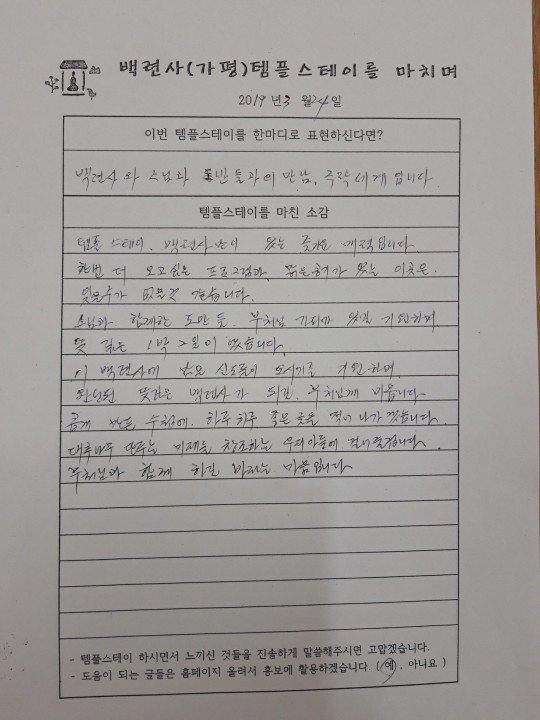 백련사(가평)템플스테이를 마치며
2019년 3월 24일
이번 템플스테이를 한마디로 표현하신다면?
백련사와 스님과 도반들과의 만남, 극락세계 입니다
템플스테이를 마친 소감
템플스테이. 백련사만이 있는 즐거운 매력입니다.
한번 더 오고싶은 프로그램과, 이곳은.
잊을수가 없을것 같습니다.
스님과 함께한 도반들. 부처님 가피가 있길 기원하며
뜻 깊은 1박 2일이 였습니다.
이 백련사에 많은 신도들이 오시기를 기원하며
뜻깊은 백련사가 되길. 부처님께 비옵니다.
수첩에. 하루하루 좋은 글을 적어 나가겠습니다.
미래를 창조하는 우리아들에
부처님과 함께 하길 바라는 마음입니다
- 템플스테이 하시면서 느끼신 것들을 진솔하게 말씀해주시면 고맙겠습니다.
- 도움이 되는 글들은 홈페이지 올려서 홍보에 활용하겠습니다. (예, 아니요)